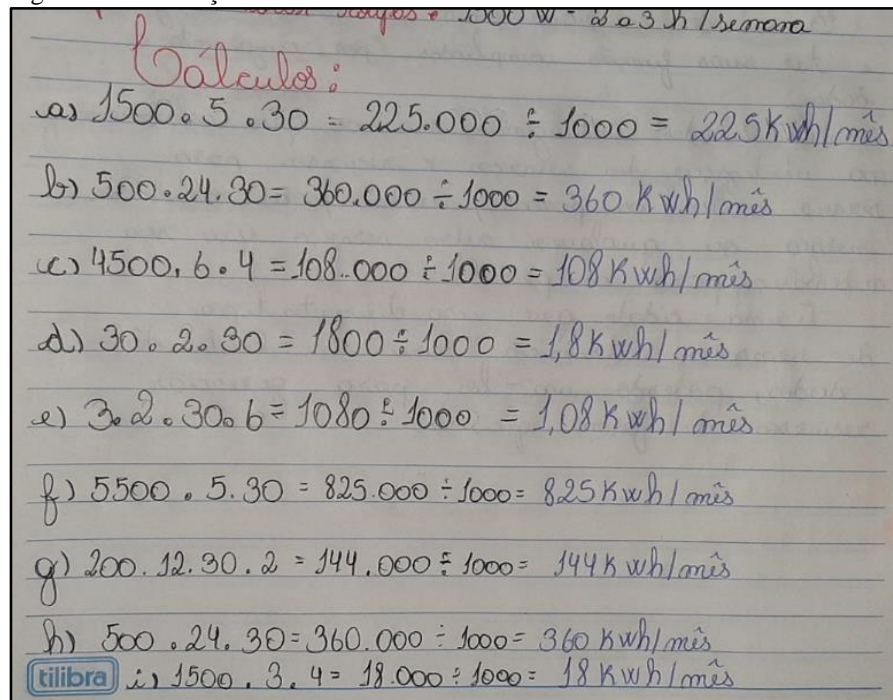 1500 W - 2 a 3 h / semana
Cálculos:
a) 1500 . 5 . 30 = 225.000 ÷ 1000 = 225 Kwh/mês
b) 500 . 24 . 30 = 360.000 ÷ 1000 = 360 Kwh/mês
c) 4500 . 6 . 4 = 108.000 ÷ 1000 = 108 Kwh/mês
d) 30 . 2 . 30 = 1800 ÷ 1000 = 1,8 Kwh/mês
e) 3 . 2 . 30 . 6 = 1080 ÷ 1000 = 1,08 Kwh/mês
f) 5500 . 5 . 30 = 825.000 ÷ 1000 = 825 Kwh/mês
g) 200 . 12 . 30 . 2 = 144.000 ÷ 1000 = 144 Kwh/mês
h) 500 . 24 . 30 = 360.000 ÷ 1000 = 360 Kwh/mês
tilibra i) 1500 . 3 . 4 = 18.000 ÷ 1000 = 18 Kwh/mês